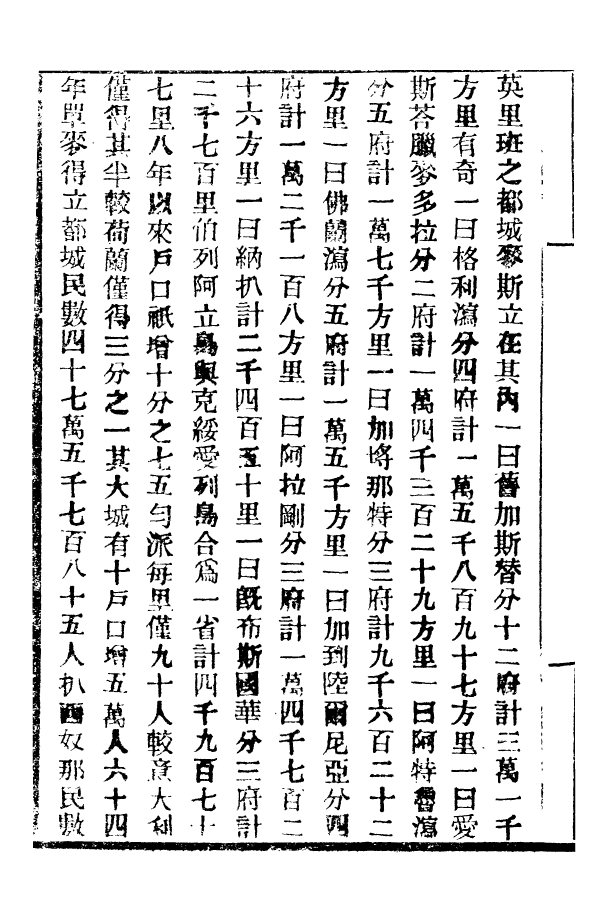 英里班之都城麥斯立在其內一曰舊加斯替分十二府計三萬一千
方里有奇一曰格利瀉分四府計一萬五千八百九十七方里一曰愛
斯荅臘麥多拉分二府計一萬四千三百二十九方里一曰阿特魯瀉
分五府計一萬七千方里一曰加塔那特分三府計九千六百二十二
方里一曰佛蘭瀉分五府計一萬五千方里一曰加到陸爾尼亞分四
府計一萬二千一百八方里一曰阿拉剛分三府計一萬四千七百二
十六方里一曰納扒計二千四百五十里一曰旣布斯國華分三府計
二千七百里伯列阿立島與克綏愛列島合爲一省計四千九百七十
七里八年以來戶口祇增十分之七五勻派每里僅九十人較意大利
僅得其半較荷蘭僅得三分之一其大城有十戶口增五萬人六十四
年單麥得立都城民數四十七萬五千七百八十五人扒西奴那民數